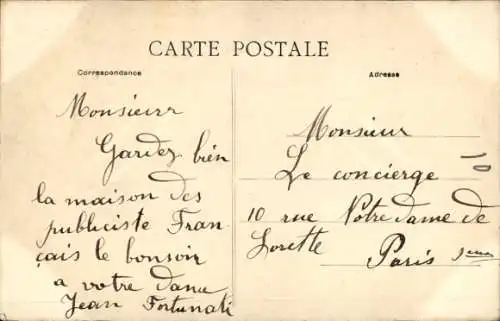 CARTE POSTALE
Correspondance
Adresse
Monsieurr
Gardez bién
la maison des
publiciste Fran
çais le bonsoir
a votre danu
Jean Fortunati
Monsieur
Le concierge
10
10 rue Notre dame de
Lorette
Paris